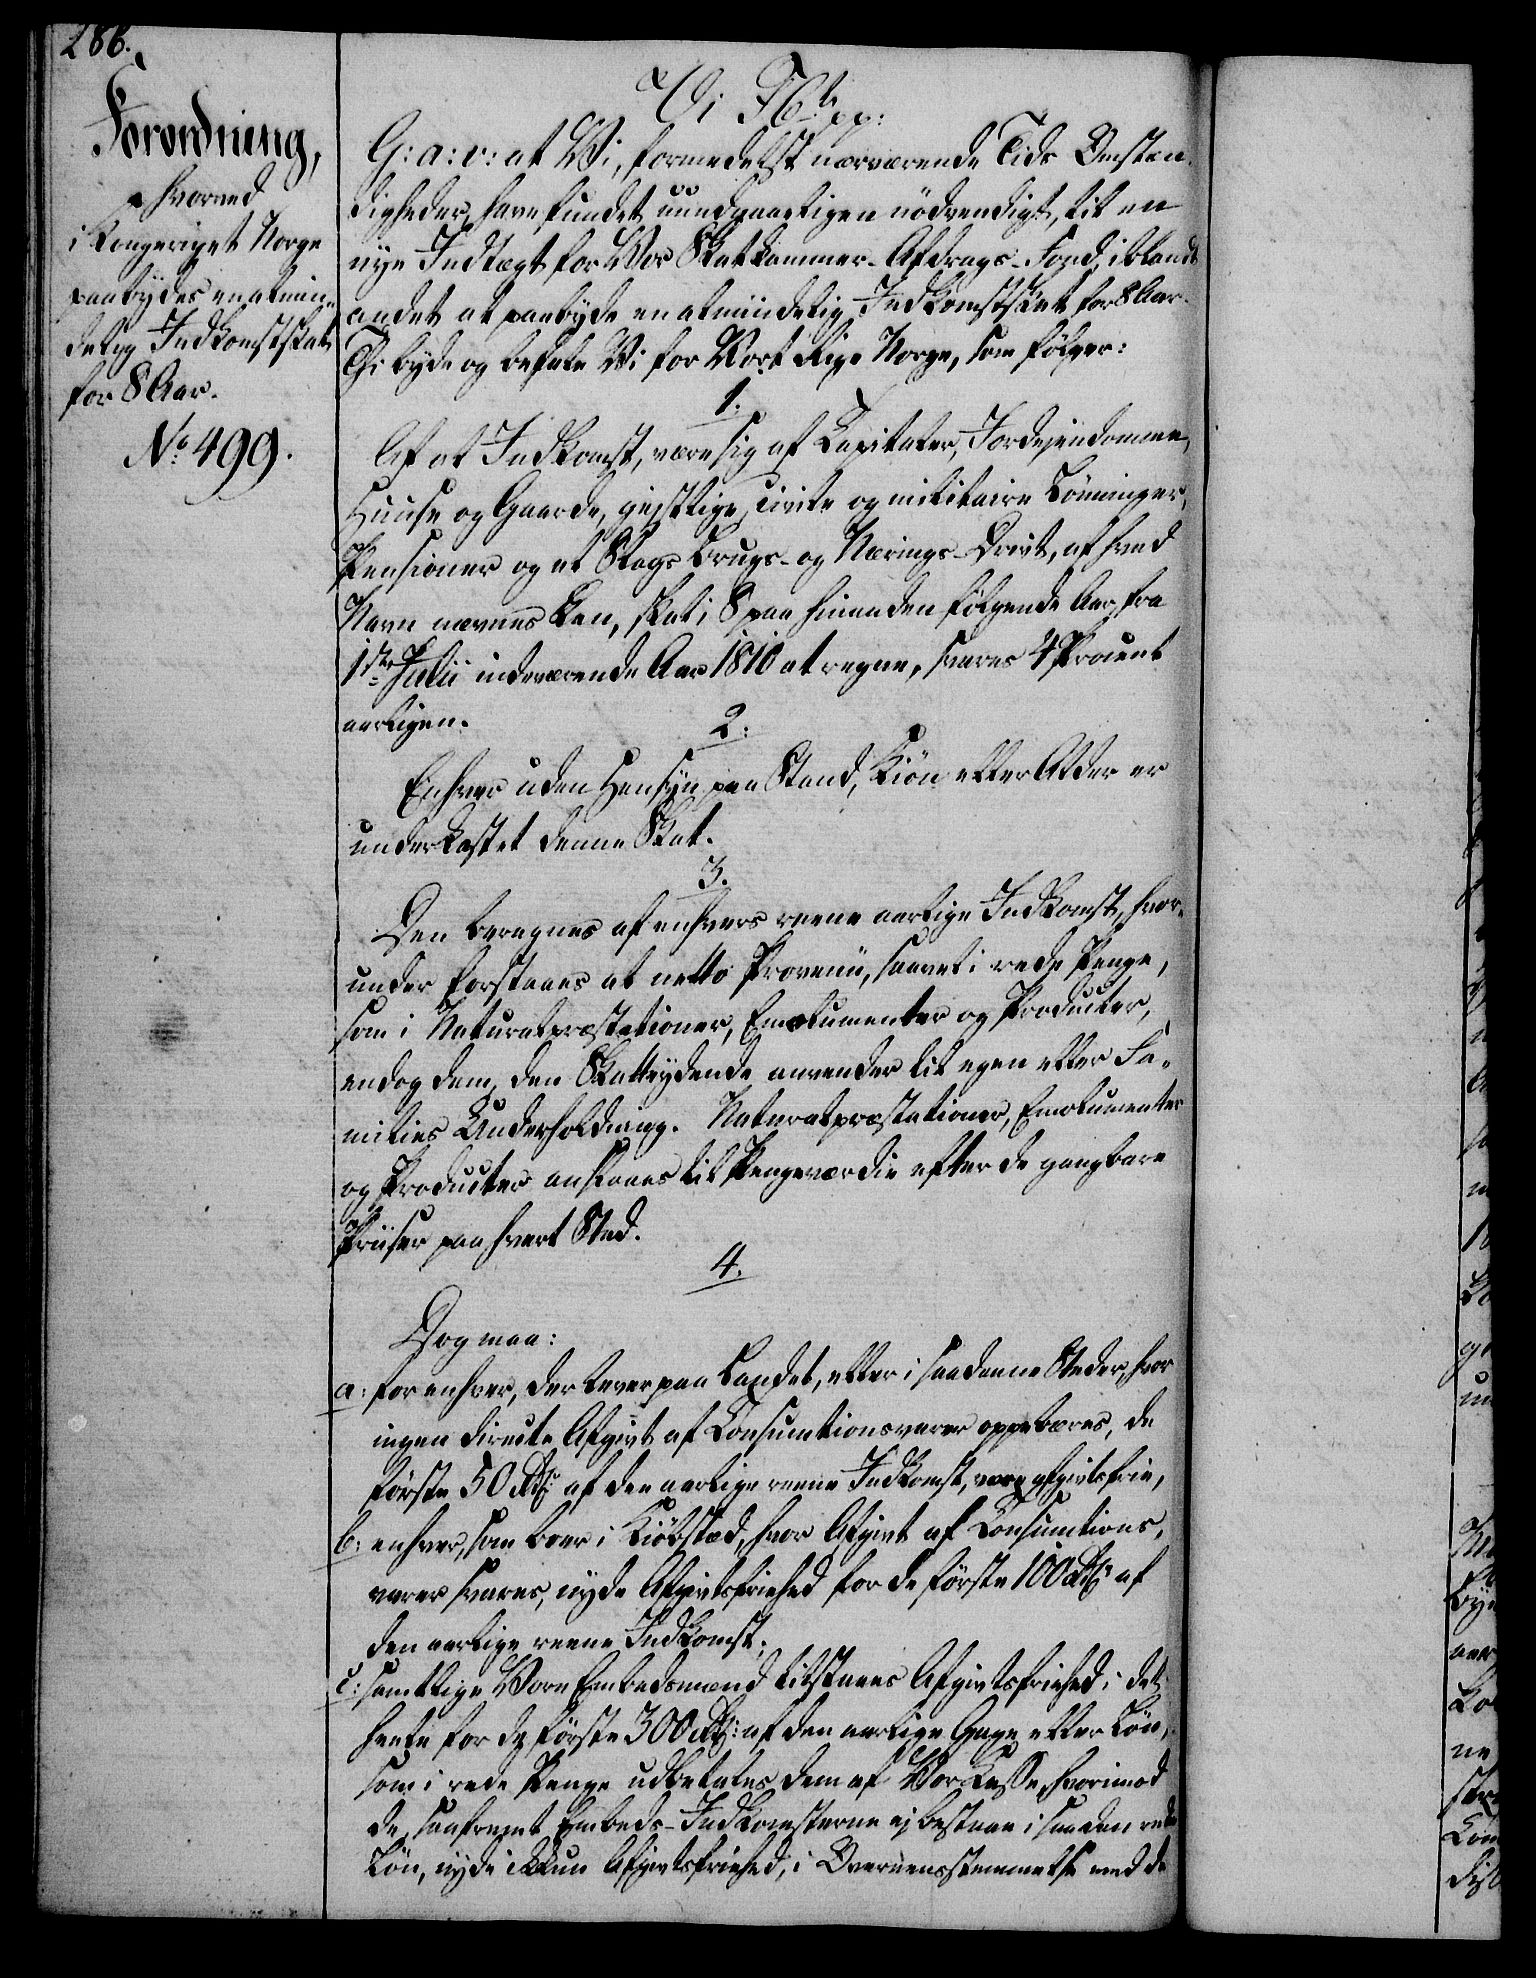 286.
Forordning,
hvorved
i Kongeriget Norge
paabydes en almin-
delig Indkomstskat
for 8 Aar.
No. 499.
Vi F 6te pp:
G: a: v: at Vi, formedelst nærværende Tids Omstæn-
digheder, have fundet uundgaaeligen nödvendigt, til en
nye Indtægt for Vor Skatkammer-Afdrags-Fond, iblandt
andet at paabyde en almindelig Indkomstskat for 8 Aar.
Thi byde og befale Vi for Vort Rige Norge, som fölger:
1.
Af al Indkomst, være sig af Capitaler, Jordejendomme,
Huuse og Gaarde, gejstlige, civile og militaire Lönninger,
Pensioner og al Slags Brugs- og Nærings-Drivt, af hvad
Navn nævnes kan, skal i 8 paa hinanden fölgende Aar, fra
1ste Julii indeværende Aar 1810 at regne, svares 4 Procent
aarligen.
2:
Enhver uden Hensyn paa Stand, Kiön eller Alder er
underkastet denne Skat.
3.
Den beregnes af enhvers reene aarlige Indkomst, hvor-
under forstaaes al netto Provenü, saavel i rede Penge,
som i Naturalpræstationer, Emolumenter og Producter,
endog dem, den Skatteydende anvender til egen eller Fa-
milies Underholdning. Naturalpræstationer, Emolumenter
og Producter ansaaes til Pengeværdie efter de gangbare
Priiser paa hvert Sted.
4.
Dog maa:
a: for enhver, der lever paa Landet, eller i saadanne Steder, hvor
ingen directe Afgivt af Consumtionsvarer oppebæres, de
förste 50 Rd. af den aarlige reene Indkomst, være afgivtsfrie,
b: enhver, som boer i Kiöbstæd, hvor Afgivt af Consumtions-
varer svares, nyde Afgivtsfriehed for de förste 100 Rd. af
den aarlige reene Indkomst.
c: samtlige Vore Embedsmænd tilstaaes Afgivtsfriehed i det
heele for de förste 300 Rd: af den aarlige Gage eller Lön,
som i rede Penge udbetales dem af Vor Kasse, hvorimod
de, saafremt Embeds-Indkomsterne ej bestaae i saadan rede
Lön, nyde ikkun Afgivtsfriehed, i Overeensstemmelse med de